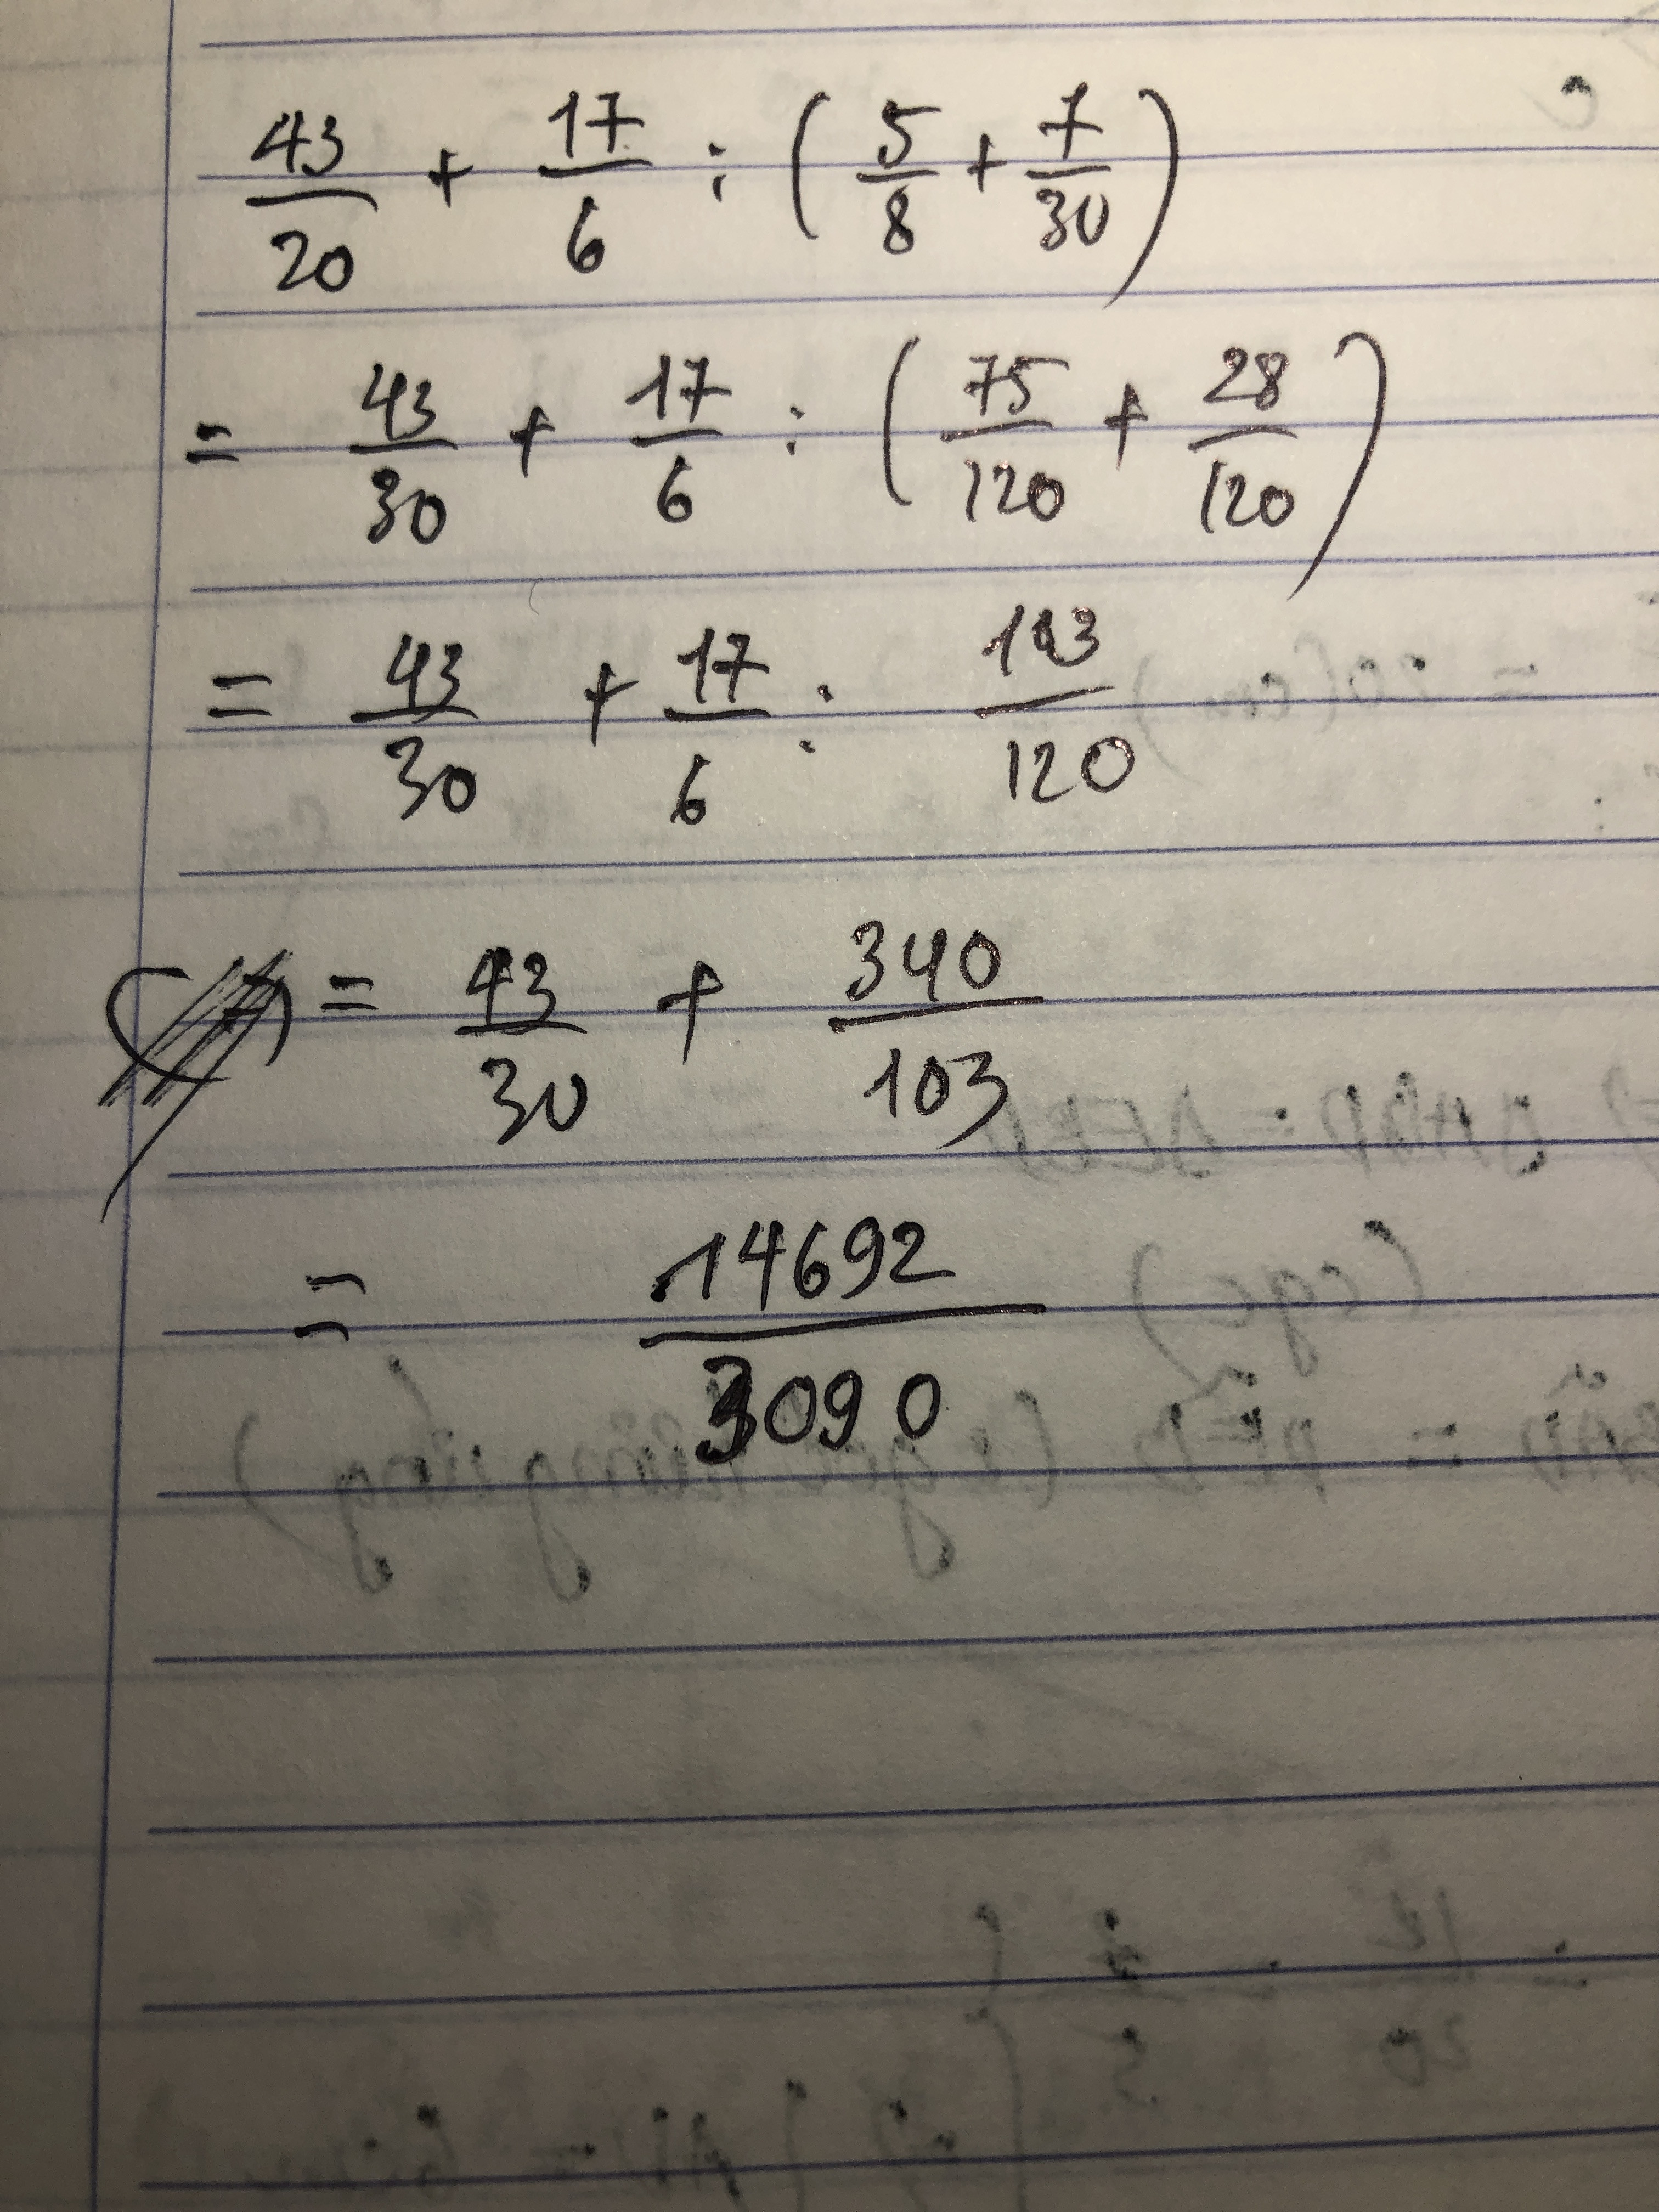 43/20 + 17/6 : (5/8 + 7/30)
= 43/30 + 17/6 : (75/120 + 28/120)
= 43/30 + 17/6 : 103/120
= 43/30 + 340/103
= 14692/3090